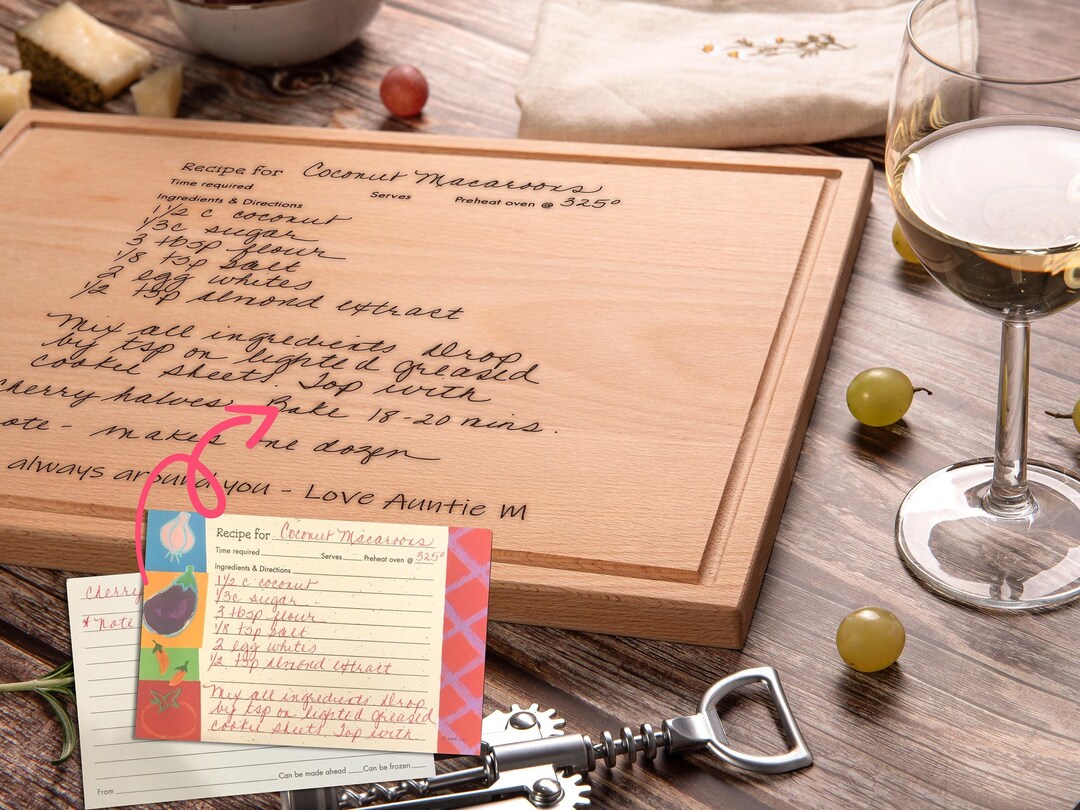 Recipe for Coconut Macaroons
Time required Serves Preheat oven @ 325°
Ingredients & Directions
1 1/2 c coconut
1/3c sugar
3 tbsp flour
1/8 tsp salt
2 egg whites
1/2 tsp almond extract
Mix all ingredients Drop
by tsp on lighted greased
cookie sheets. Top with
cherry halves Bake 18-20 mins.
ote - makes one dozen
always around you - Love Auntie M
Recipe for Coconut Macaroons
Time required Serves Preheat oven @ 325°
Ingredients & Directions
1 1/2 c coconut
1/3c sugar
3 tbsp flour
1/8 tsp salt
2 egg whites
1/2 tsp almond extract
Mix all ingredients Drop
by tsp on lighted greased
cookie sheets. Top with
cherry
* note
Can be made ahead Can be frozen
From